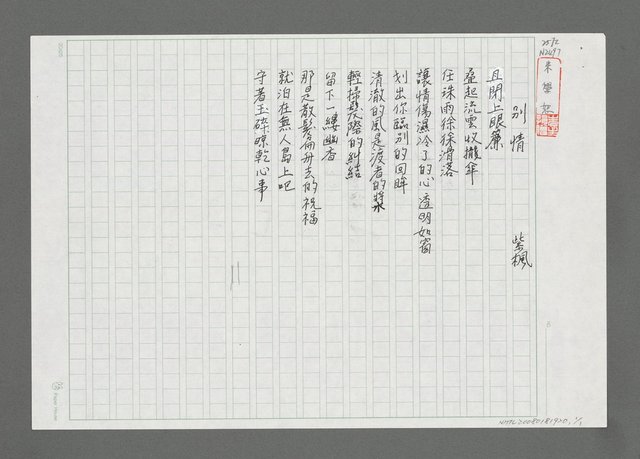 25/2
N2697
別情
紫楓
且閉上眼簾
疊起流雲收攏傘
任珠雨徐徐滑落
讓情傷濕冷了的心透明如窗
划出你臨別的回眸
清澈的風是渡者的槳
輕掃髮際的糾結
留下一縷幽香
那是散髻佩冊去的祝福
就泊在無人島上吧
守著玉碎晾乾心事
Paper House
NMTL20080181920, 1/1